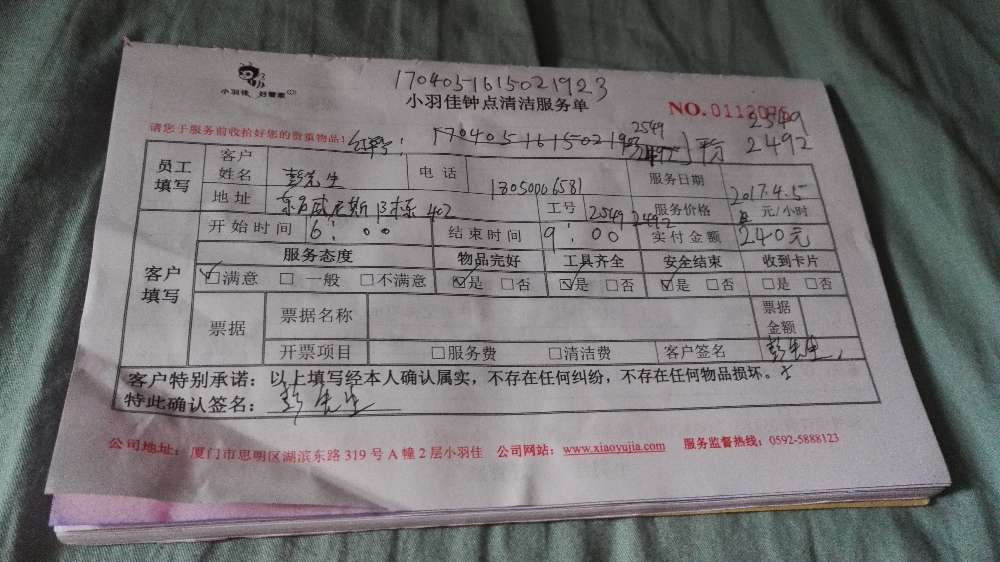 小羽佳 好管家
170405161502 1923
小羽佳钟点清洁服务单
NO.0112076
2549
请您于服务前收拾好您的贵重物品!
170405161502193
2549
2492
员工填写 客户姓名 彭先生 电话 服务日期 2017.4.5
地址 402 工号 2549 2492 服务价格 元/小时
客户填写 开始时间 6:00 结束时间 9:00 实付金额 240元
服务态度 物品完好 工具齐全 安全结束 收到卡片
☑满意 □一般 □不满意 ☑是 □否 ☑是 □否 ☑是 □否 □是 □否
票据 票据名称 票据金额
开票项目 □服务费 □清洁费 客户签名 彭先生
客户特别承诺：以上填写经本人确认属实，不存在任何纠纷，不存在任何物品损坏。
特此确认签名： 彭先生
公司地址：厦门市思明区湖滨东路319号A幢2层小羽佳 公司网站：www.xiaoyujia.com 服务监督热线：0592-5888123